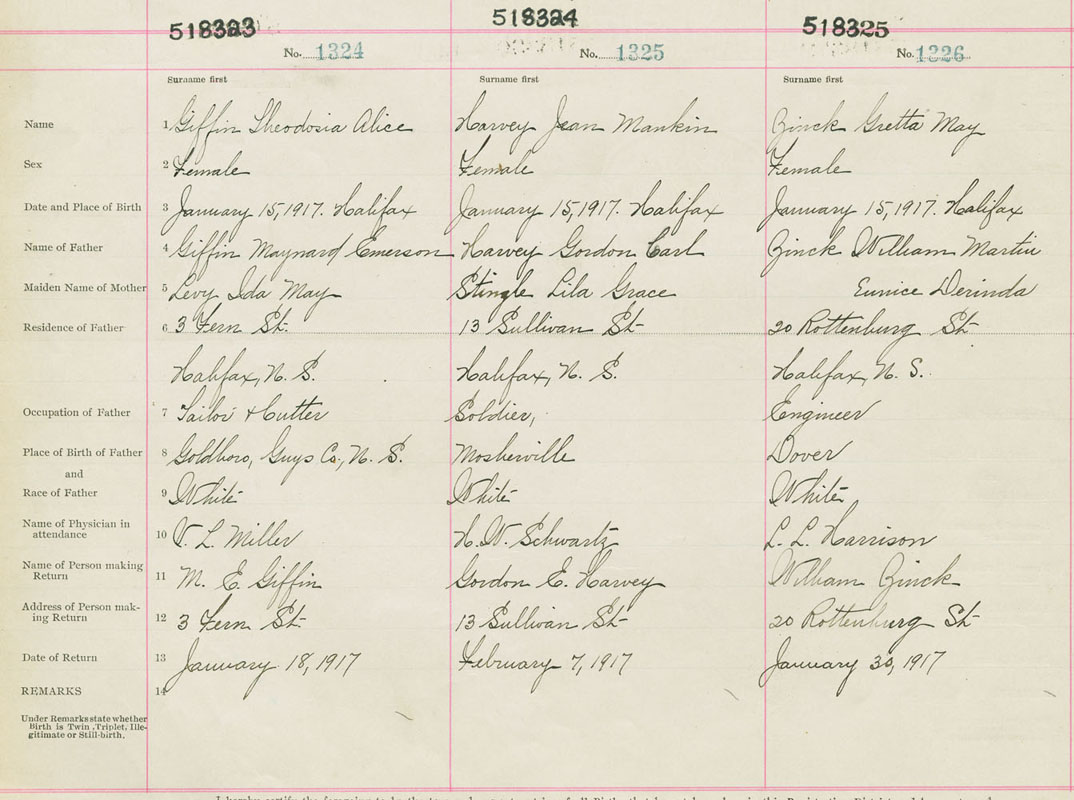 518323 518324 518325
No. 1324 No. 1325 No. 1326
Surname first Surname first Surname first
Name 1 Giffin Theodosia Alice Harvey Jean Mankin Zinck Gretta May
Sex 2 Female Female Female
Date and Place of Birth 3 January 15, 1917. Halifax January 15, 1917. Halifax January 15, 1917. Halifax
Name of Father 4 Giffin Maynard Emerson Harvey Gordon Carl Zinck William Martin
Maiden Name of Mother 5 Levy Ida May Stingle Lila Grace Eunice Derinda
Residence of Father 6 3 Fern St. 13 Sullivan St 20 Rottenburg St
Halifax, N. S. Halifax, N. S. Halifax, N. S.
Occupation of Father 7 Tailor + Cutter Soldier, Engineer
Place of Birth of Father 8 Goldboro, Guys Co., N. S. Mosherville Dover
and
Race of Father 9 White White White
Name of Physician in
attendance 10 V. L. Miller H. W. Schwartz L. L. Harrison
Name of Person making
Return 11 M. E. Giffin Gordon C. Harvey William Zinck
Address of Person mak-
ing Return 12 3 Fern St 13 Sullivan St 20 Rottenburg St
Date of Return 13 January 18, 1917 February 7, 1917 January 30, 1917
REMARKS 14
Under Remarks state whether
Birth is Twin, Triplet, Ille-
gitimate or Still-birth.